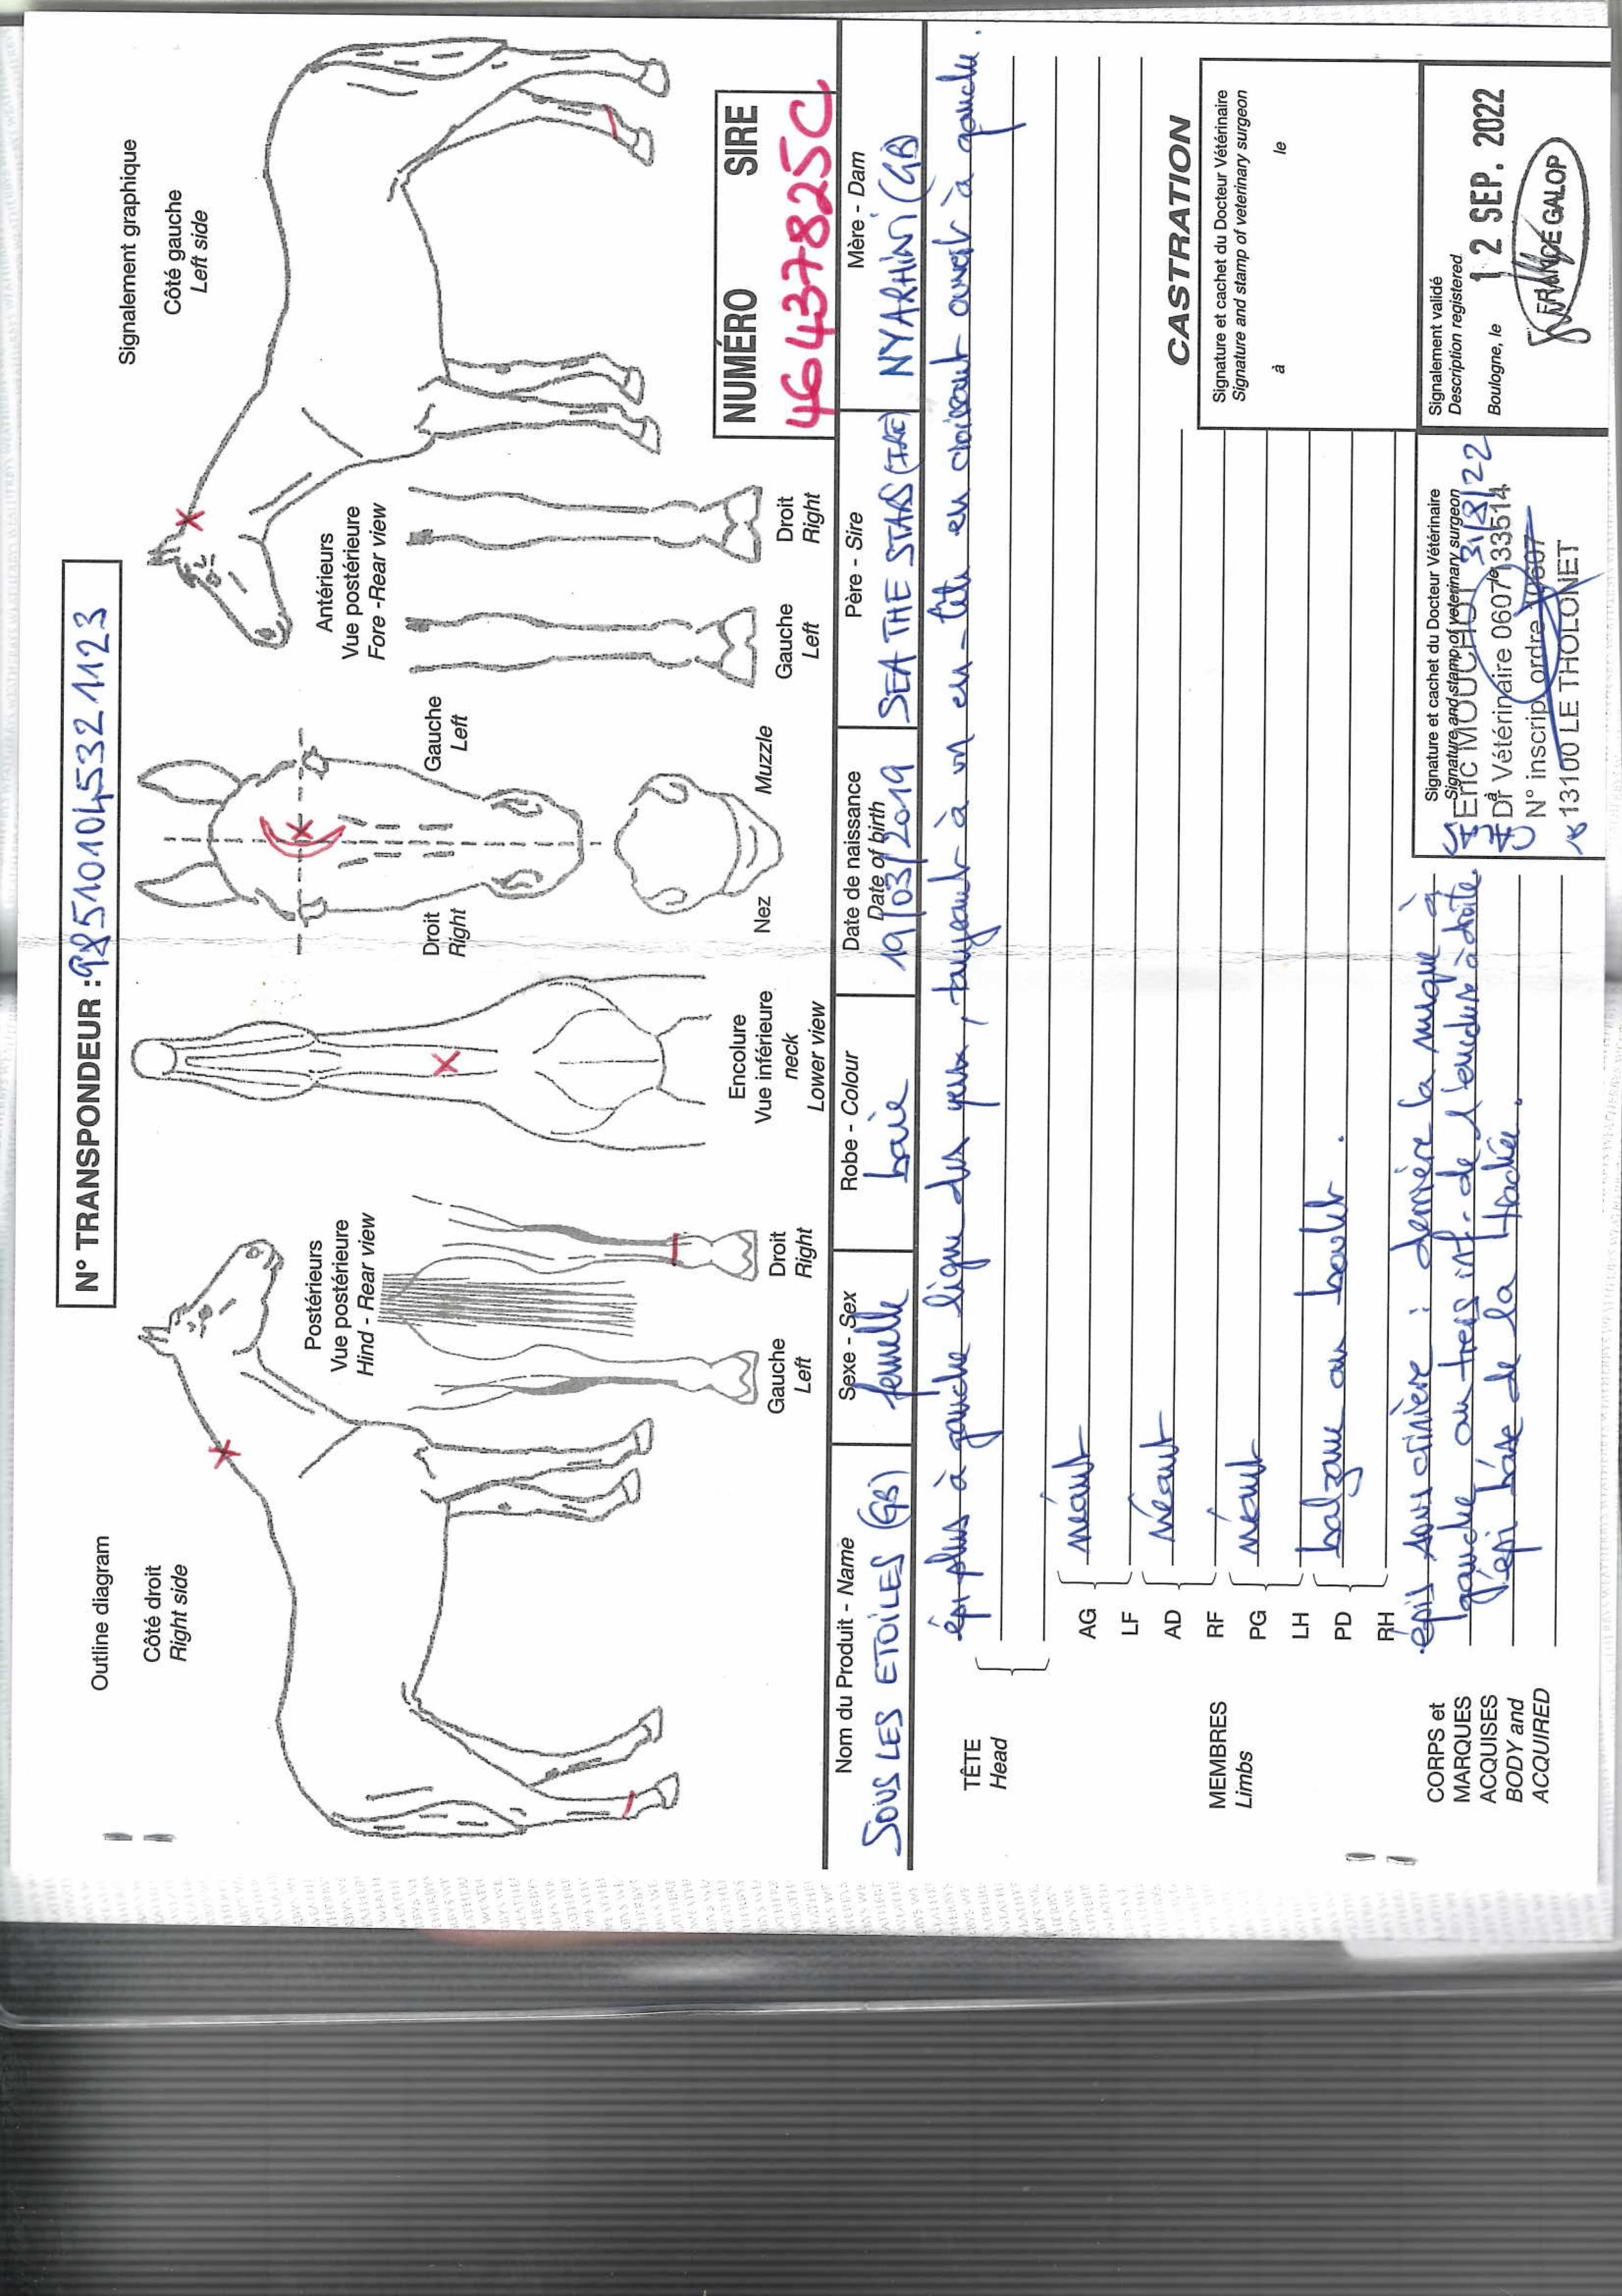 N° TRANSPONDEUR : 985101045321123
Outline diagram
Côté droit
Right side
Postérieurs
Vue postérieure
Hind - Rear view
Gauche
Left
Droit
Right
Encolure
Vue inférieure
neck
Lower view
Droit
Right
Gauche
Left
Nez
Muzzle
Antérieurs
Vue postérieure
Fore -Rear view
Gauche
Left
Droit
Right
Signalement graphique
Côté gauche
Left side
NUMÉRO SIRE
46437825C
Nom du Produit - Name
SOUS LES ETOILES (GB)
Sexe - Sex
femelle
Robe - Colour
baie
Date de naissance
Date of birth
19/03/2019
Père - Sire
SEA THE STARS (IRE)
Mère - Dam
NYARHINI (GB)
TÊTE
Head
épi plus à gauche ligne des yeux, tangeant à un en-tête en croissant ouvert à gauche.
MEMBRES
Limbs
AG
LF
néant
AD
RF
néant
PG
LH
néant
PD
RH
balzane au boulet.
CASTRATION
Signature et cachet du Docteur Vétérinaire
Signature and stamp of veterinary surgeon
à le
CORPS et
MARQUES
ACQUISES
BODY and
ACQUIRED
épis sous crinière : derrière la nuque à
gauche au tiers inf. de l'encolure à droite.
épi base de la trachée.
Signature et cachet du Docteur Vétérinaire
Signature and stamp of veterinary surgeon
Eric MOUCHOT 31/8/22
Dr Vétérinaire 0607133514
N° inscrip. ordre 10607
13100 LE THOLONET
Signalement validé
Description registered
Boulogne, le 12 SEP. 2022
FRANCE GALOP